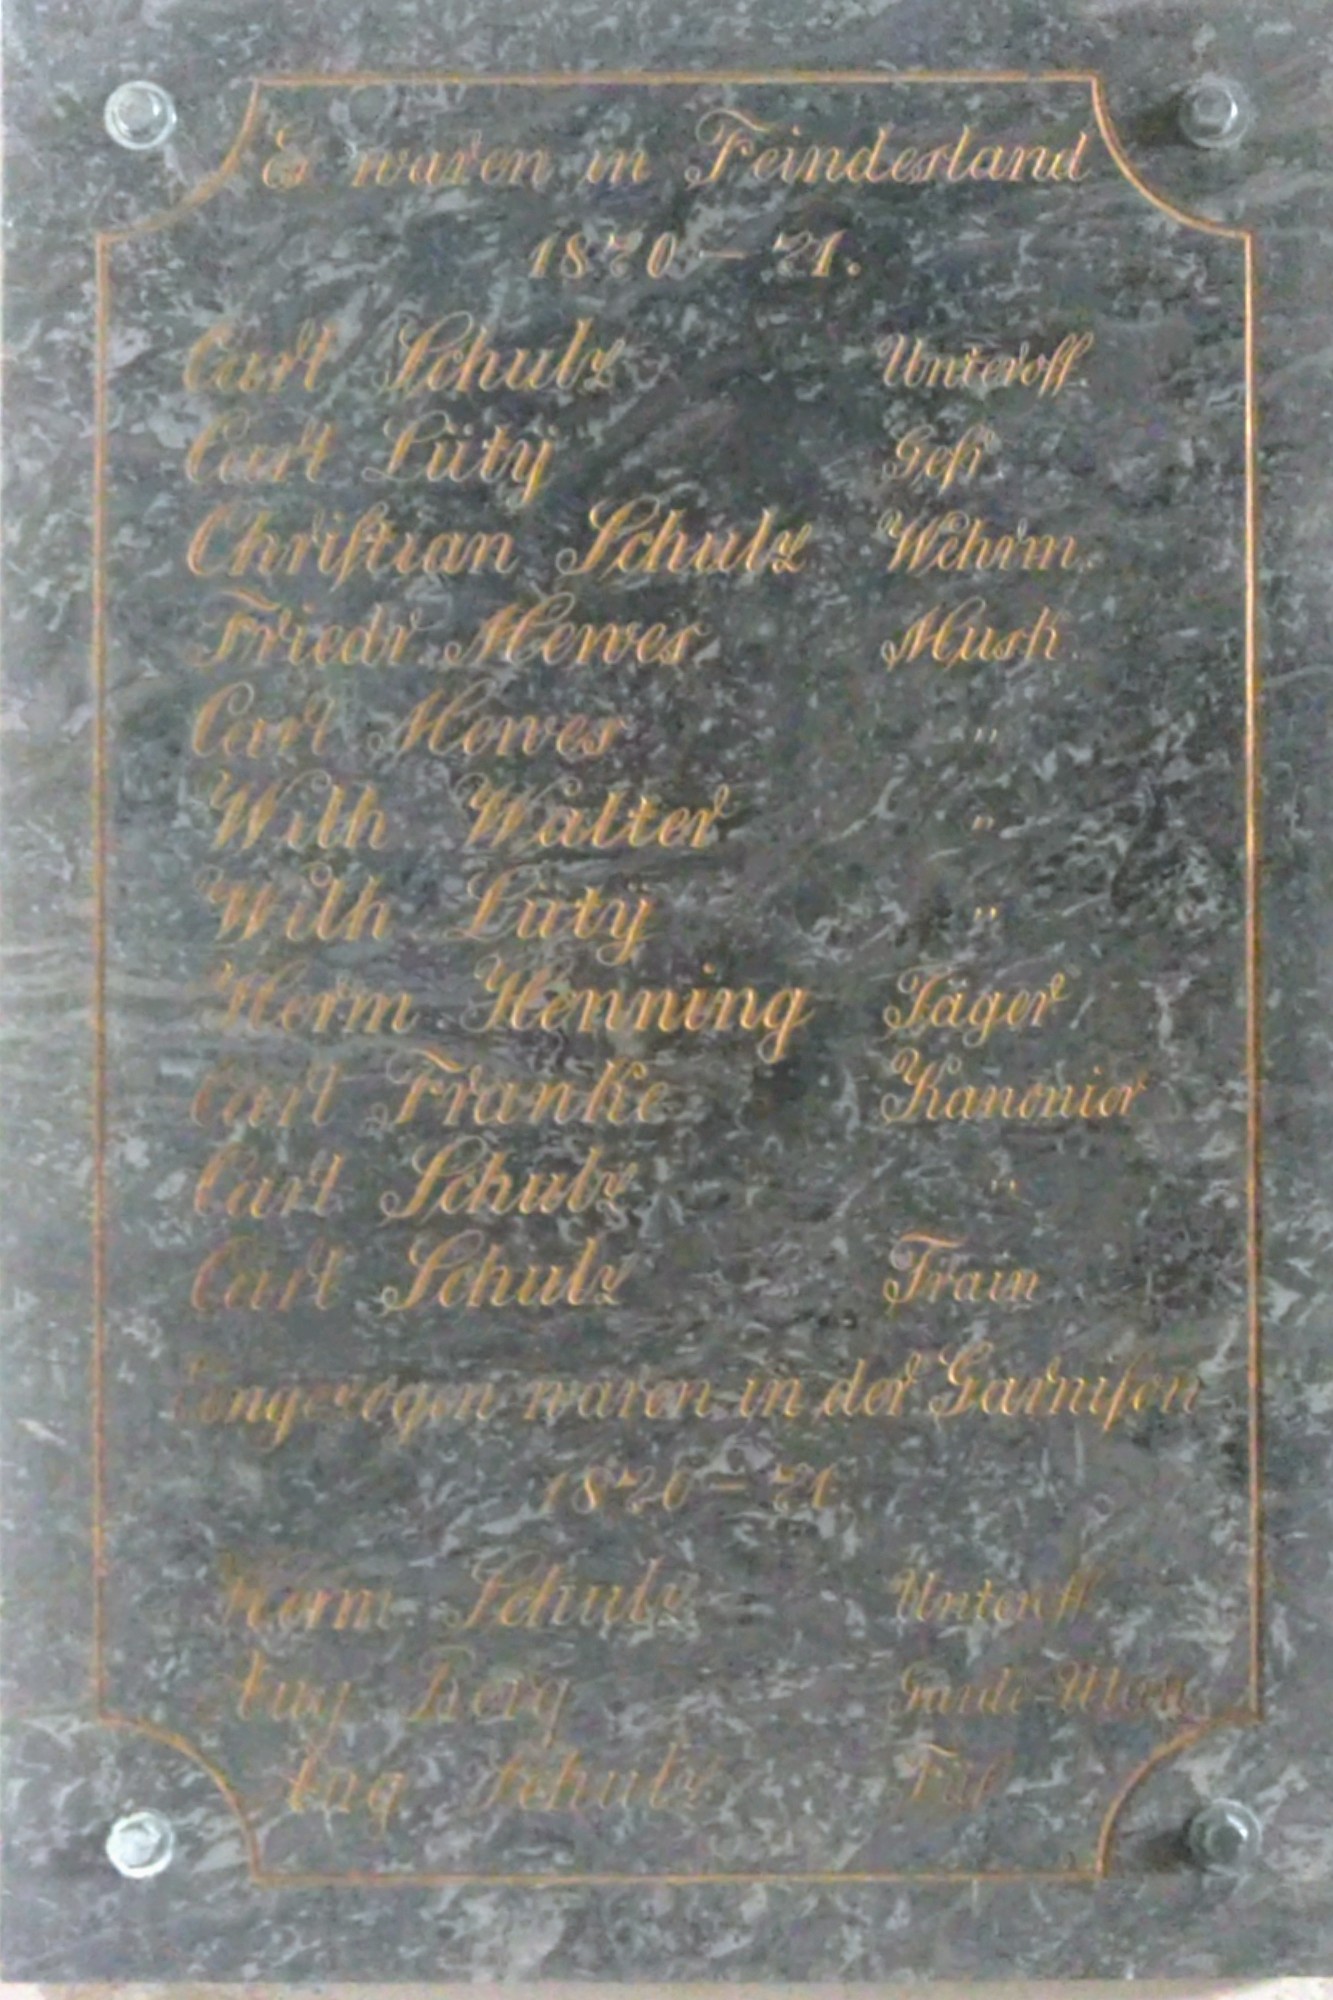 Es waren in Feindesland
1870 – 71.
Carl Schulz Unteroff.
Carl Lüty Gefr.
Christian Schulz Wehrm.
Friedr. Mewes Musk.
Carl Mewes "
Wilh. Walter "
Wilh. Lüty "
Herm. Henning Jäger
Carl Franke Kanonier
Carl Schulz "
Carl Schulz Train
Eingezogen waren in der Garnison
1870 – 71.
Herm. Schulz Unteroff.
Aug. Berg Garde-Ulan
Aug. Schulz Füs.